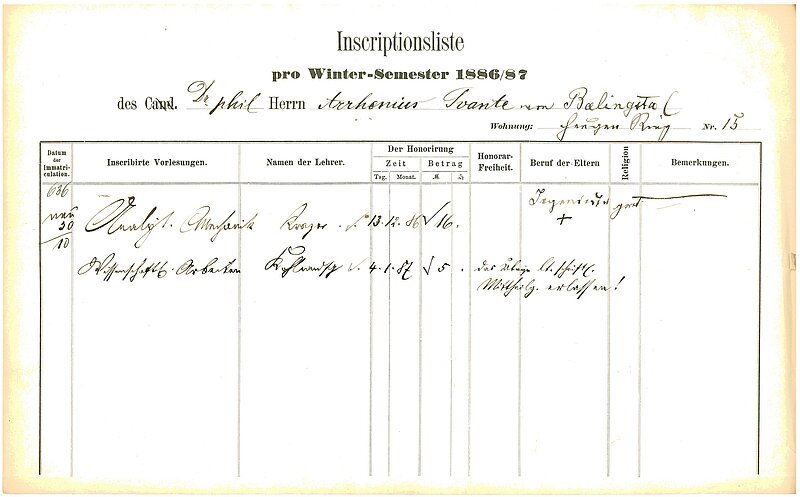 Inscriptionsliste
pro Winter-Semester 1886/87
des Cand. Dr phil Herrn Arrhenius Svante von Bælingsta
Wohnung: Ring Nr. 15
Datum der Immatriculation. Inscribirte Vorlesungen. Namen der Lehrer. Der Honorirung Zeit Tag. Monat. Betrag ℳ ₰ Honorar-Freiheit. Beruf der Eltern Religion Bemerkungen.
636
neu
30
10
Analyt. Mechanik 13. 12. 86 16. Ingenieur †
Wissenschaftl. Arbeiten Kohlrausch 4. 1. 87 5. das Übrige lt. schriftl.
Mittheilg. erlassen!